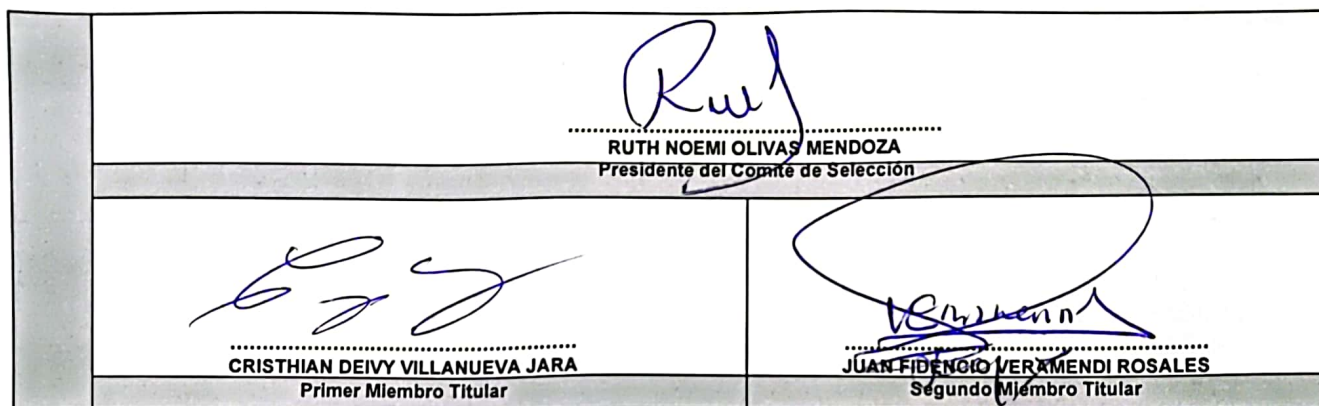 RUTH NOEMI OLIVAS MENDOZA
Presidente del Comité de Selección
CRISTHIAN DEIVY VILLANUEVA JARA
Primer Miembro Titular
JUAN FIDENCIO VERAMENDI ROSALES
Segundo Miembro Titular